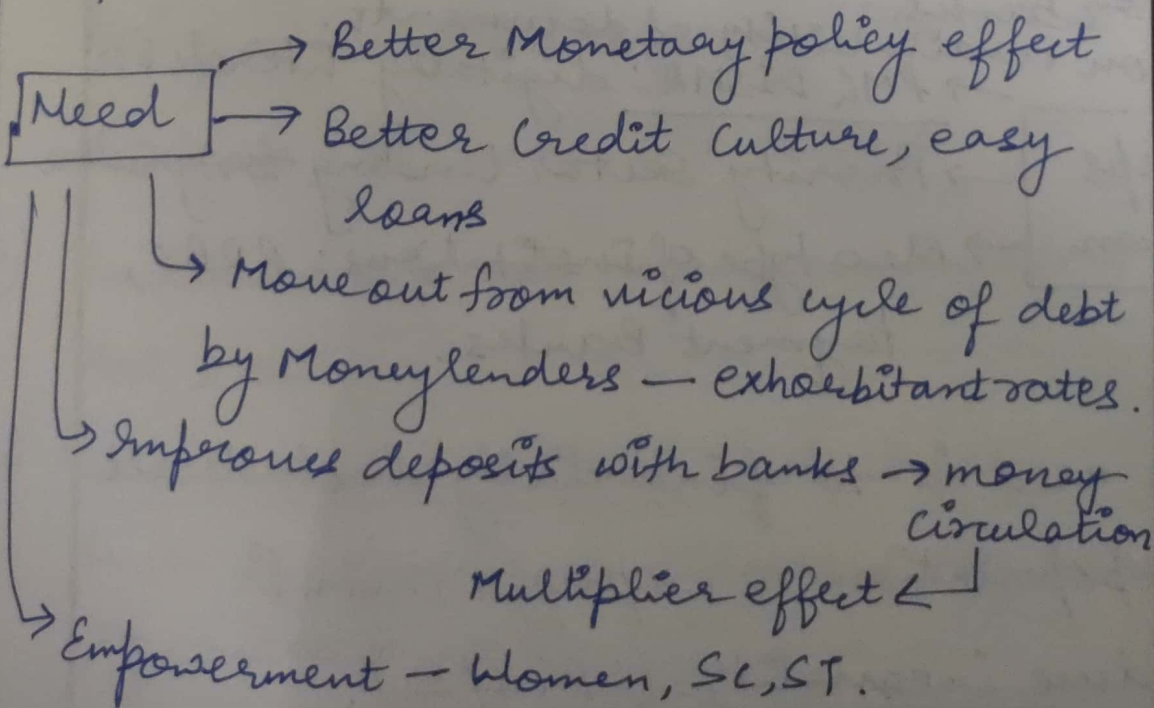 Need
→ Better Monetary policy effect
→ Better Credit Culture, easy
loans
→ Move out from vicious cycle of debt
by Moneylenders — exhorbitant rates.
→ Improves deposits with banks → money
circulation
Multiplier effect ←
→ Empowerment – Women, SC, ST.